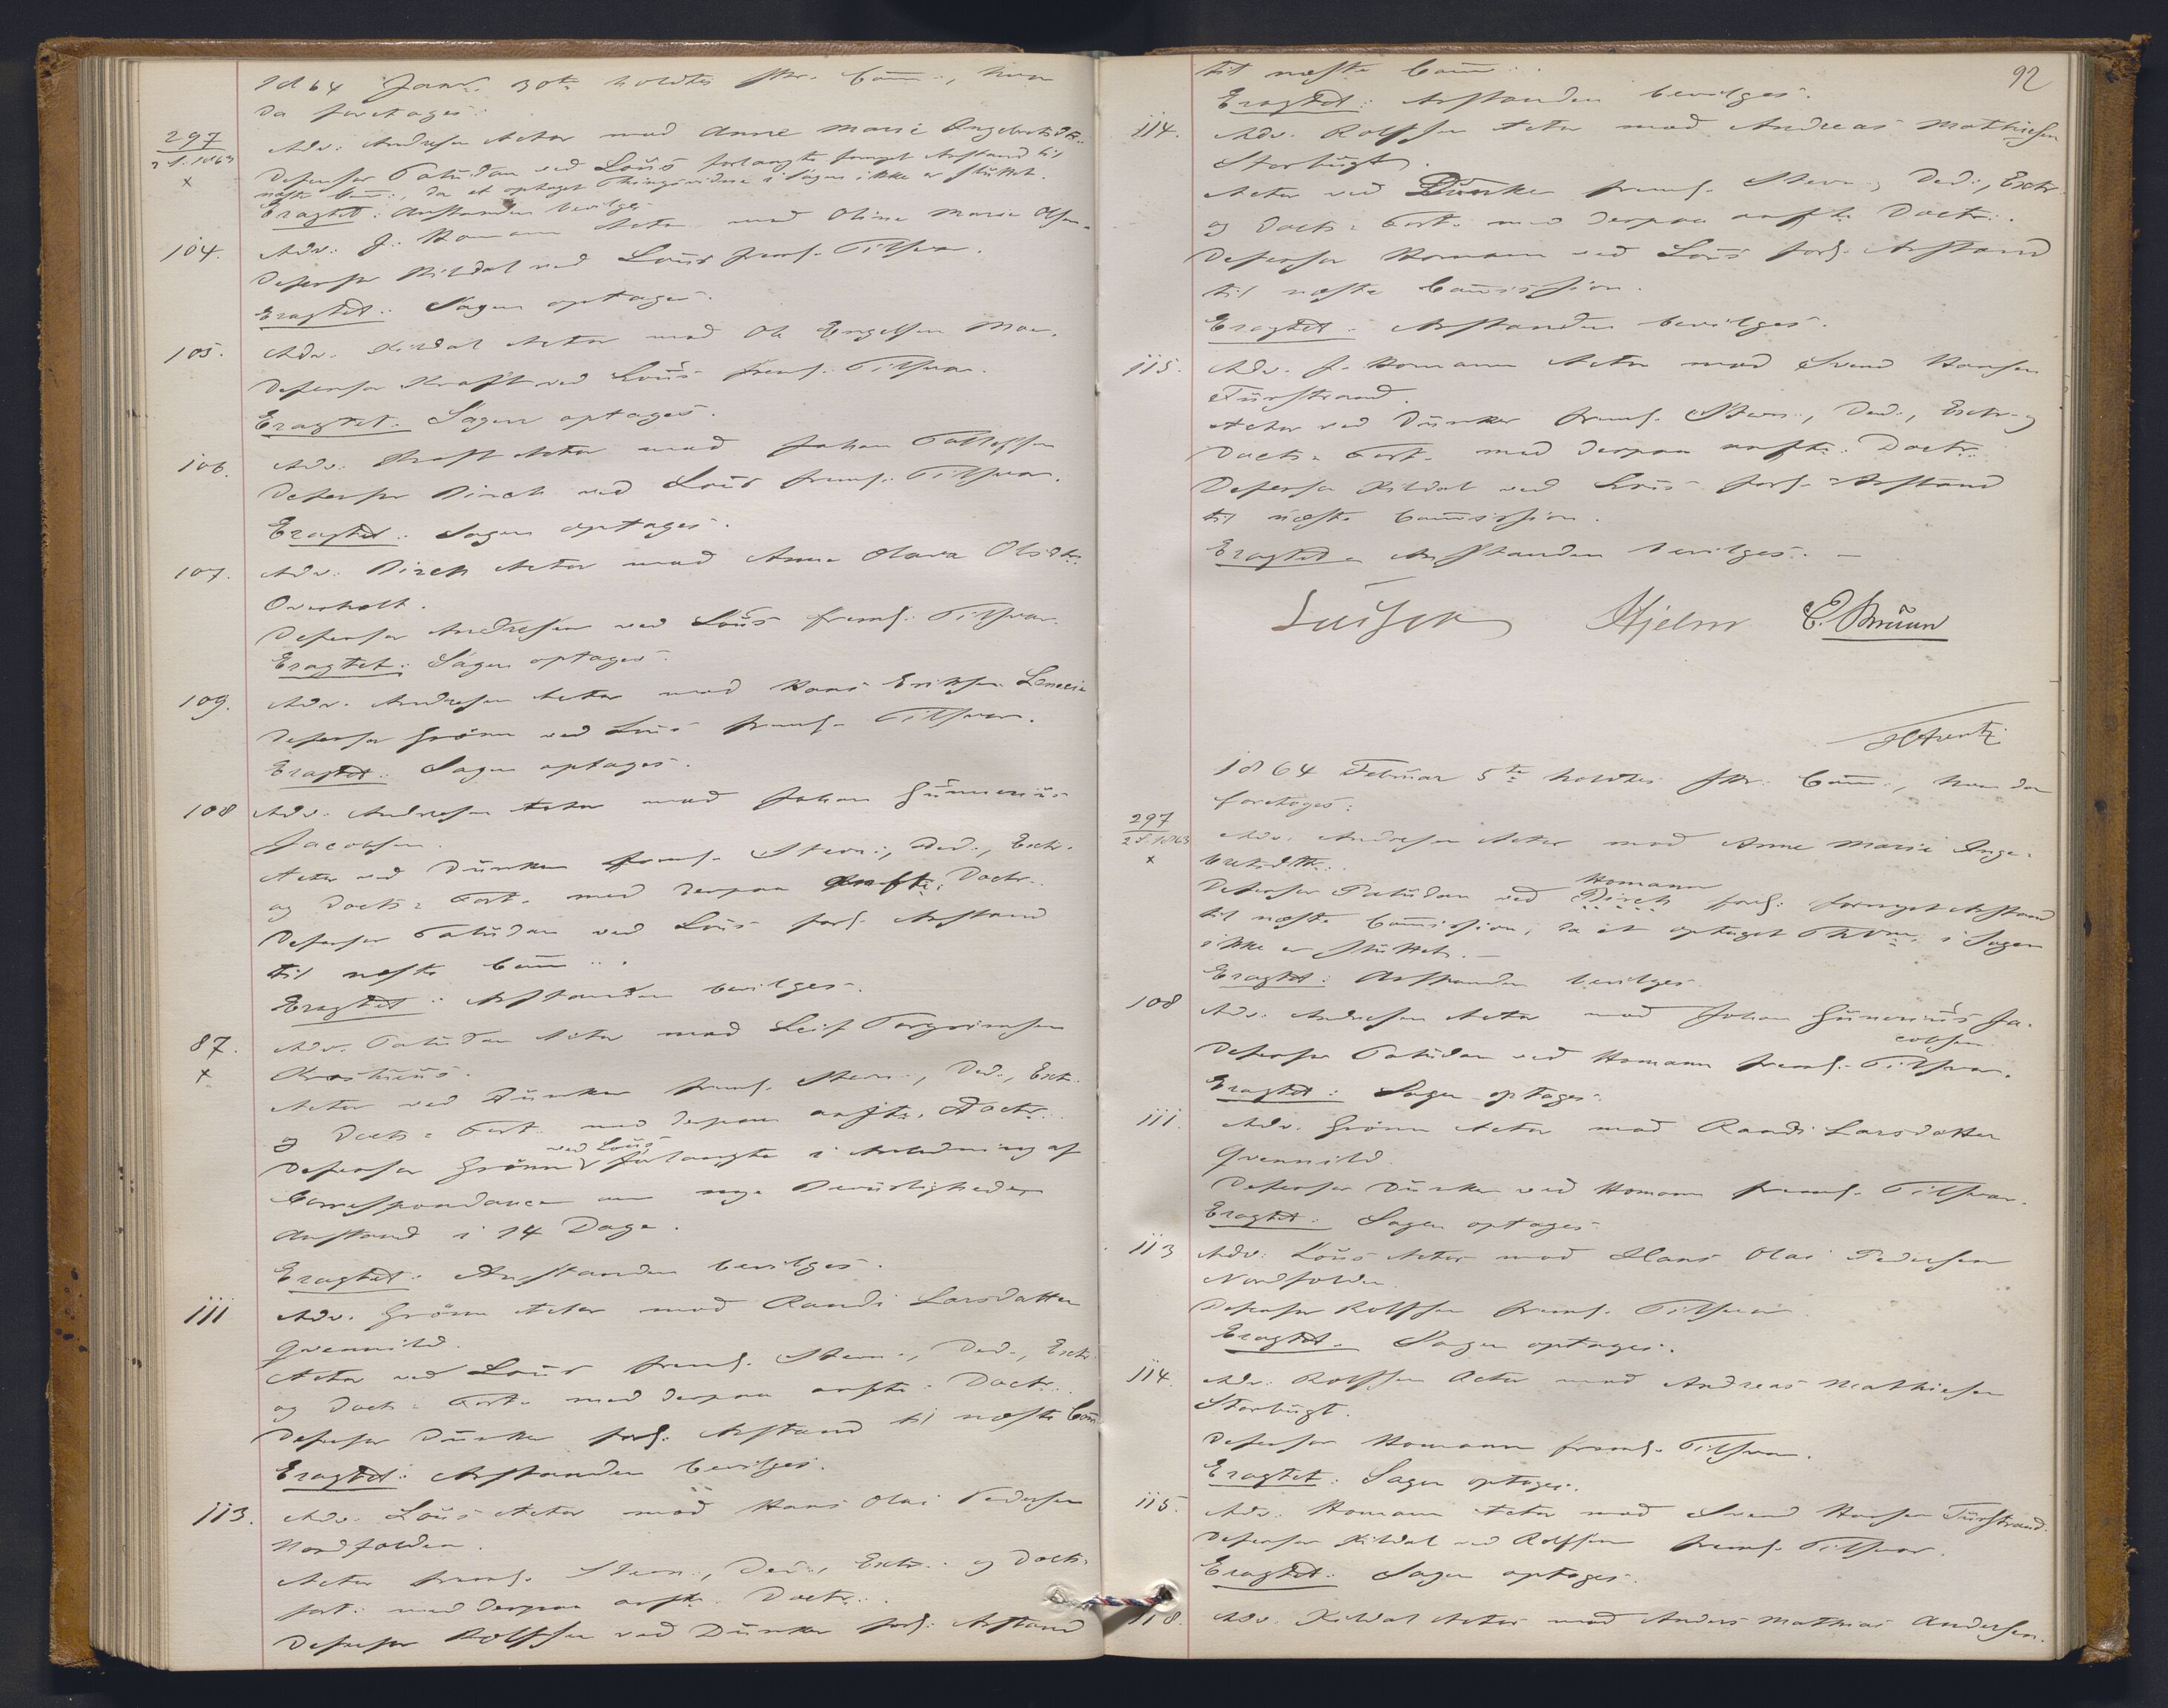 1864 Janr. 30te holdtes Skr. Comm:, hvor
da foretoges:
297
2 S. 1863
x
Adv: Andresen Actor mod Anne Marie Engebretsdtr.
Defensor Paludan ved Louis forlangte fornyet Anstand til
næste Com:, da et optaget Thingsvidne i Sagen ikke er sluttet.
Eragtet: Anstanden bevilges.
104.
Adv: J. Homann Actor mod Oline Marie Olsen.
Defensor Kildal ved Louis freml. Tilsvar.
Eragtet: Sagen optages.
105.
Adv. Kildal Actor mod Ole Engelsen Moe.
Defensor Kraft ved Louis freml. Tilsvar.
Eragtet. Sagen optages.
106.
Adv. Kraft Actor mod Johan Tollefsen
Defensor Birch ved Louis freml. Tilsvar.
Eragtet: Sagen optages.
107.
Adv. Birch Actor mod Anne Olava Olsdtr.
Overholt.
Defensor Andresen ved Louis freml. Tilsvar.
Eragtet: Sagen optages.
109.
Adv. Andresen Actor mod Hans Eriksen
Defensor Grönn ved Louis freml. Tilsvar.
Eragtet: Sagen optages.
108
Adv. Andresen Actor mod Johan Gunnerius
Jacobsen.
Actor ved Dunker freml. Stevn:, Ded:, Extr.
og Docts: Fort. med derpaa Doctr.
Defensor Paludan ved Louis forl. Anstand
til næste Com:.
Eragtet: Anstanden bevilges.
87.
x
Adv. Paludan Actor mod Leif Torgrimsen
Actor ved Dunker freml. Stevn:, Ded:, Extr.
og Docts: Fort. med derpaa Doctr.
Defensor Grönn ved Louis forlangte i Anledning af
Correspondance om nye
Anstand i 14 Dage.
Eragtet: Anstanden bevilges.
111
Adv. Grönn Actor mod Randi Larsdatter
Qvennild.
Actor ved Louis freml. Stevn:, Ded:, Extr.
og Docts: Fort. med derpaa Doctr.
Defensor Dunker forl. Anstand til næste Com
Eragtet: Anstanden bevilges.
113.
Adv. Louis Actor mod Hans Olai Pedersen
Nordfolden.
Actor freml. Stevn:, Ded:, Extr: og Docts:
fort: med derpaa Doctr.
Defensor Rolfsen ved Dunker forl. Anstand
92
til næste Com:.
Eragtet: Anstanden bevilges.
114.
Adv. Rolfsen Actor mod Andreas Mathiesen
Storbugt.
Actor ved Dunker freml. Stevn:, Ded:, Extr.
og Docts: Fort. med derpaa Doctr.
Defensor Homann ved Louis forl. Anstand
til næste Commission.
Eragtet: Anstanden bevilges.
115.
Adv. J. Homann Actor mod Svend Hansen
Furstrand.
Actor ved Dunker freml. Stevn:, Ded:, Extr. og
Docts: Fort. med derpaa Doctr.
Defensor Kildal ved Louis forl. Anstand
til næste Commission.
Eragtet: Anstanden bevilges. —
Hjelm E. Bruun
1864 Februar 5te holdtes Skr. Com:, hvor da
foretoges:
297
2 S. 1863
x
Adv. Andresen Actor mod Anne Marie Enge-
bretsdtr.
Homann
Defensor Paludan ved Birch forl. fornyet Anstand
til næste Commission, da et optaget i Sagen
ikke er sluttet. —
Eragtet: Anstanden bevilges.
108
Adv. Andresen Actor mod Johan Gunerius Ja-
cobsen.
Defensor Paludan ved Homann freml. Tilsvar.
Eragtet: Sagen optages.
111.
Adv. Grönn Actor mod Randi Larsdatter
Qvennild.
Defensor Dunker ved Homann freml. Tilsvar.
Eragtet: Sagen optages.
113
Adv: Louis Actor mod Hans Olai Pedersen
Nordfolden.
Defensor Rolfsen freml. Tilsvar.
Eragtet. Sagen optages.
114.
Adv. Rolfsen Actor mod Andreas Mathiesen
Storbugt.
Defensor Homann freml. Tilsvar.
Eragtet: Sagen optages.
115.
Adv. Homann Actor mod Svend Hansen Furstrand.
Defensor Kildal ved Rolfsen freml. Tilsvar.
Eragtet: Sagen optages.
118.
Adv. Kildal Actor mod Anders Mathias Andersen.